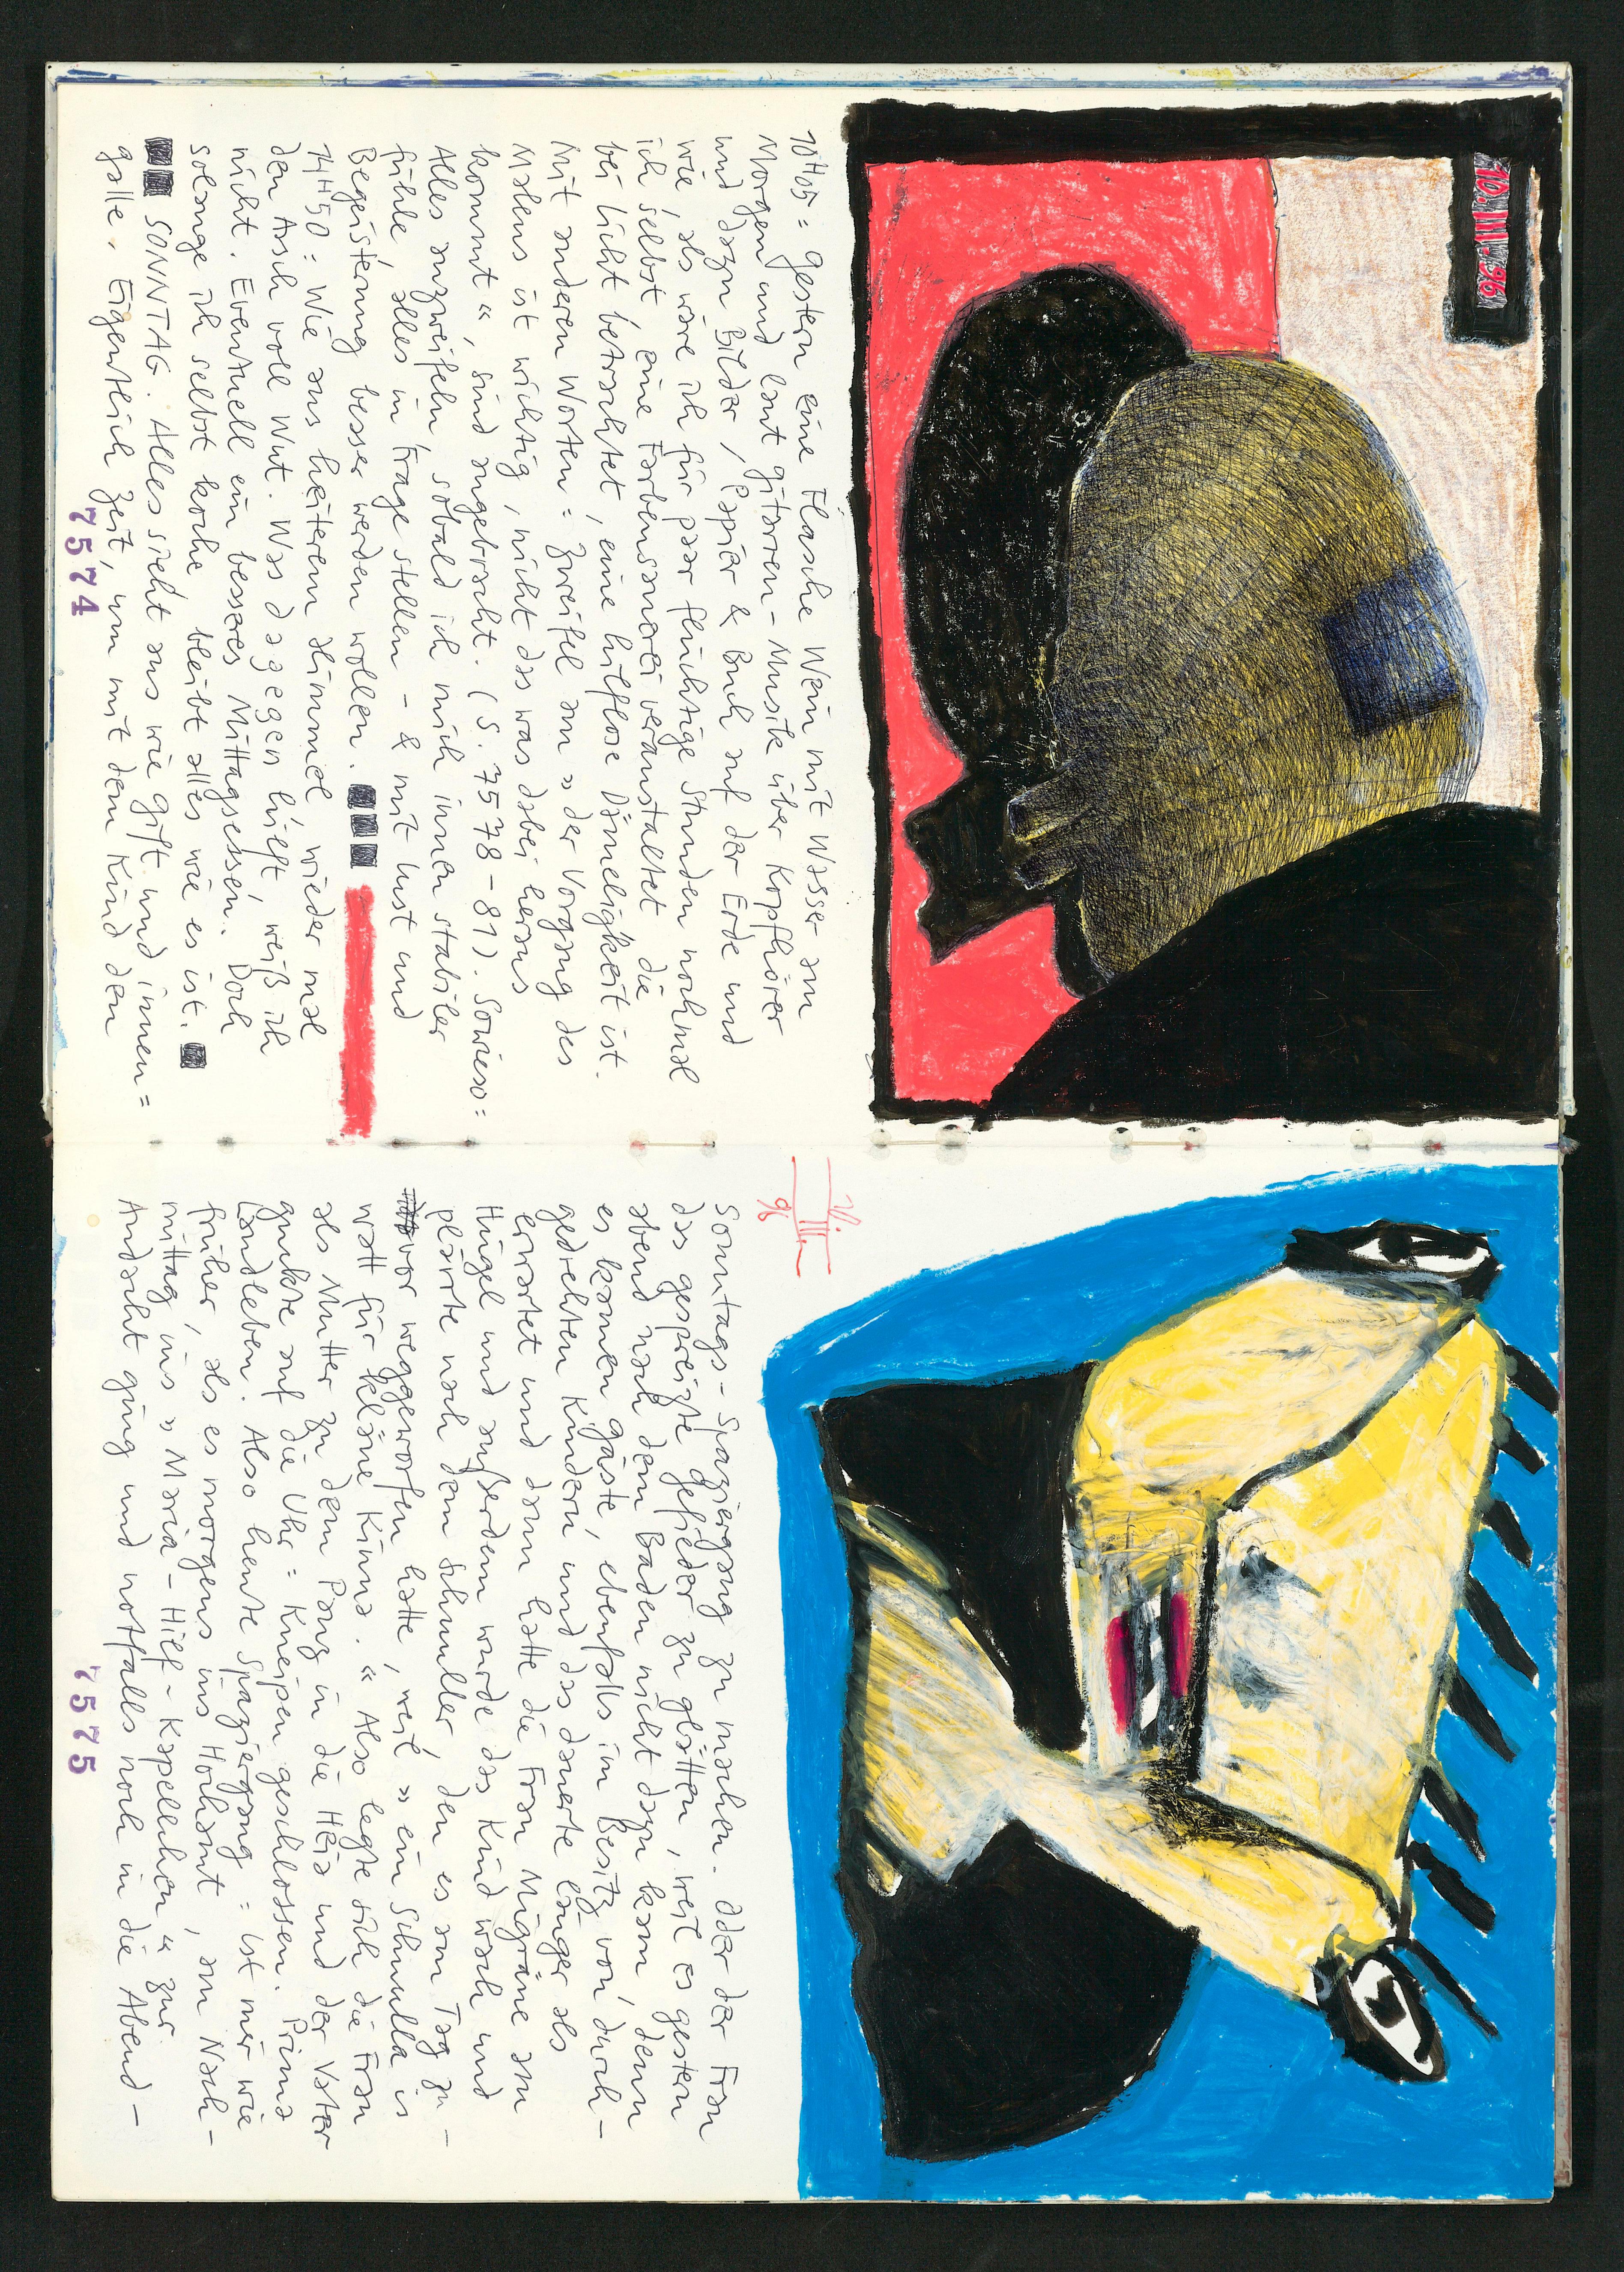 10.III.96
10H05: Gestern eine Flasche Wein mit Wasser am
Morgen und laut Gitarren-Musik über Kopfhörer
und dazu Bilder, Papier & Buch auf der Erde und
wie, als wäre ich für paar flüchtige Stunden nochmal
ich selbst eine Farbensauerei veranstaltet die
bei Licht betrachtet, eine hilflose Dämeligkeit ist.
Mit anderen Worten: Zweifel am »der Vorgang des
Malens ist wichtig, nicht das was dabei heraus
kommt«, sind angebracht. (S. 7578-81). Sowieso:
Alles anzweifeln, sobald ich mich innen stabiler
fühle, alles in Frage stellen - & mit Lust und
Begeisterung besser werden wollen.
14H50: Wie aus heiterem Himmel wieder mal
den Arsch voll Wut. Was dagegen hilft, weiß ich
nicht. Eventuell ein besseres Mittagsessen. Doch
solange ich selbst koche bleibt alles wie es ist.
SONNTAG. Alles sieht aus wie Gift und innen =
Galle. Eigentlich Zeit, um mit dem Kind den
7574
III.
96
Sonntags-Spaziergang zu machen. Oder der Frau
das gespreizte Gefieder zu glätten, weil es gestern
abend nach dem Baden nicht dazu kam, denn
es kamen Gäste, ebenfalls im Besitz von durch-
gedrehten Kindern und das dauerte länger als
erwartet und dann hatte die Frau Migräne am
Hügel und außerdem wurde das Kind wach und
plärrte nach dem Schnuller, den es am Tag zu-
vor weggeworfen hatte, weil »ein Schnulla is
watt für kläine Kinna.« Also legte sich die Frau
als Mutter zu dem Pang in die Heia und der Vater
guckte auf die Uhr: Kneipen geschlossen. Prima
Landleben. Also heute Spaziergang: ist mir wie
früher, als es morgens ins Hochamt, am Nach-
mittag ins »Maria-Hilf-Kapellchen« zur
Andacht ging und notfalls noch in die Abend-
7575